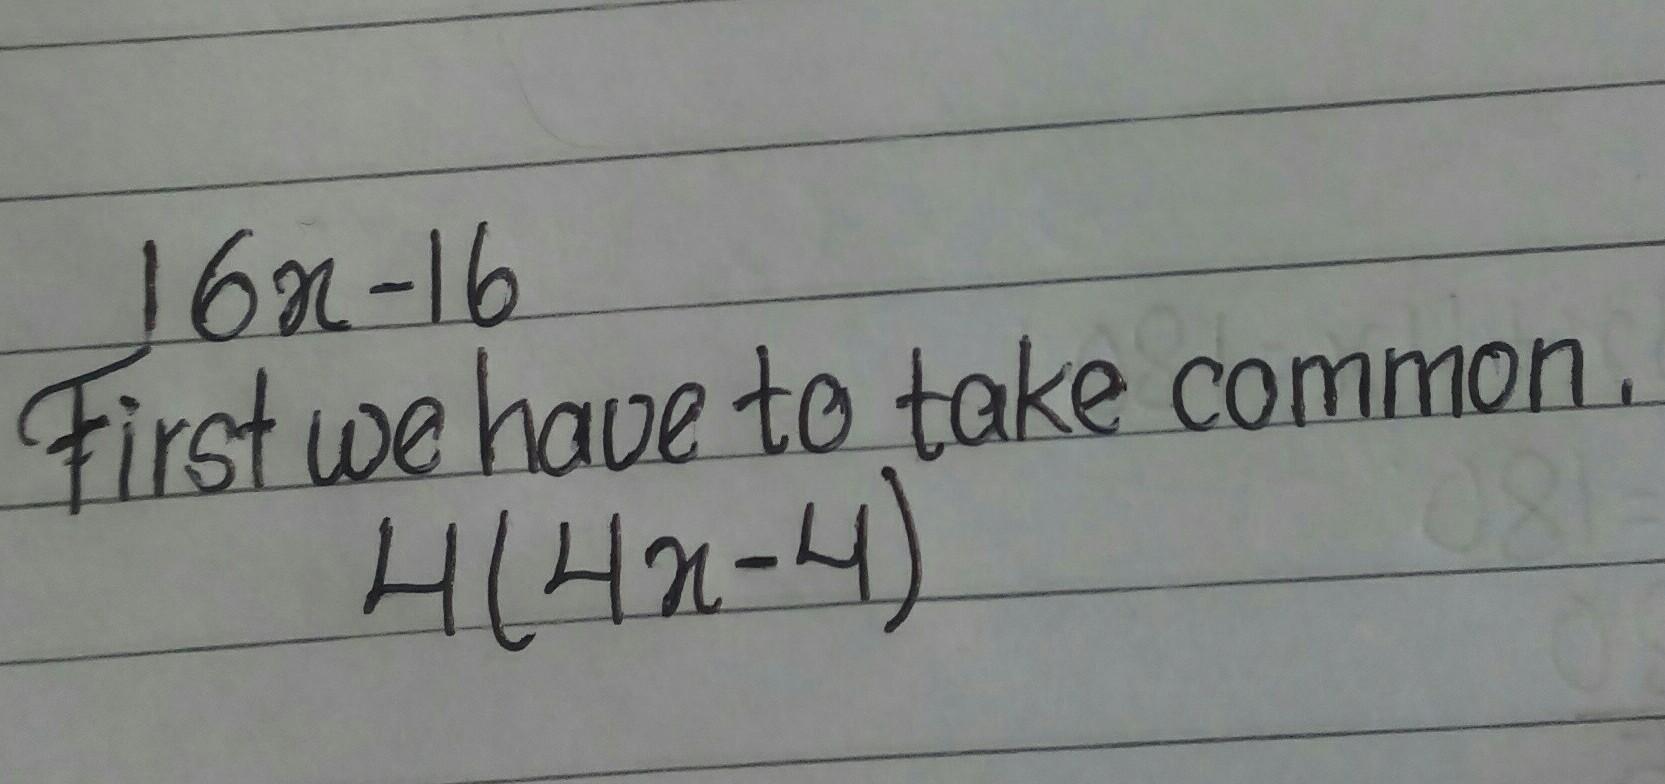 16x-16
First we have to take common.
4(4x-4)